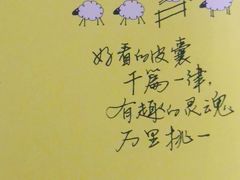 好看的皮囊
千篇一律，
有趣的灵魂
万里挑一